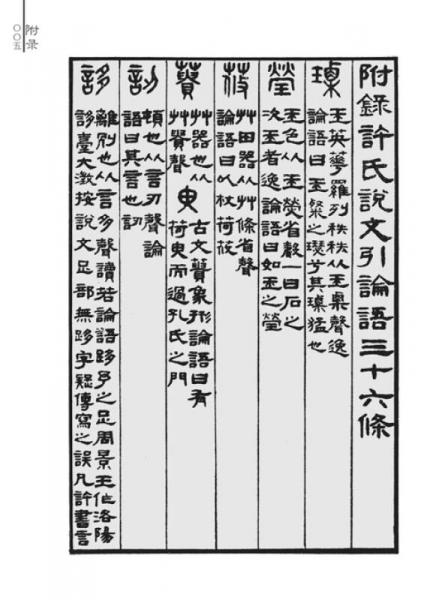 附录
〇〇五
附錄許氏說文引論語三十六條
瑮
玉英華羅列秩秩从玉㮚聲逸
論語曰玉粲之璱兮其瑮猛也
瑩
玉色从玉熒省聲一曰石之
次玉者逸論語曰如玉之瑩
莜
艸田器从艸條省聲
論語曰以杖荷莜
蕢
艸器也从
艸貴聲
臾
古文蕢象形論語曰有
荷臾而過孔氏之門
訒
頓也从言刃聲論
語曰其言也訒
誃
離別也从言多聲讀若論語跢予之足周景王作洛陽
誃臺大澂按說文足部無跢字疑傳寫之誤凡許書言